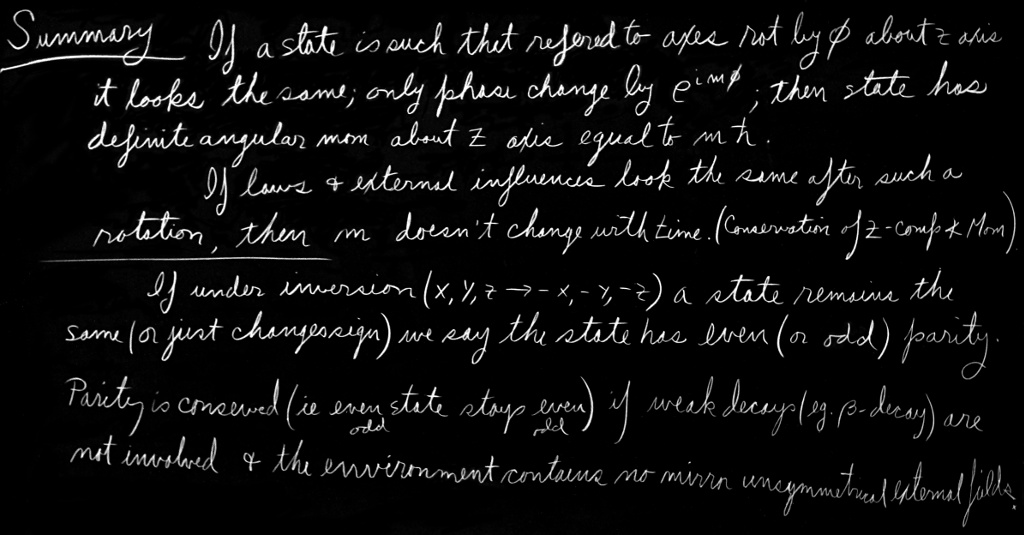 Summary If a state is such that refered to axes rot by ϕ about z axis
it looks the same; only phase change by e^{imϕ}; then state has
definite angular mom about z axis equal to mħ.
If laws & external influences look the same after such a
rotation, then m doesn't change with time. (Conservation of z-comp * Mom)
If under inversion (x, y, z → -x, -y, -z) a state remains the
same (or just changes sign) we say the state has even (or odd) parity.
Parity is conserved (ie even state stays even) if weak decays (eg. β-decay) are
odd odd
not involved & the environment contains no mirror unsymmetrical external fields.